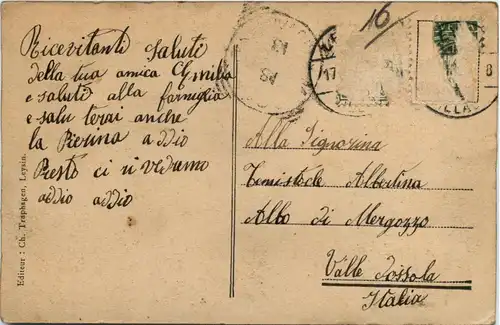 Ricevitanti saluti
della tua amica Gemilia
e saluti alla famiglia
e salu terai anche
la Pierina addio
Presto ci rivedremo
addio addio
Editeur : Ch. Traphagen, Leysin.
16
17
Alla Signorina
Temistocle Albertina
Albo di Mergozzo
Valle Dossola
Italia